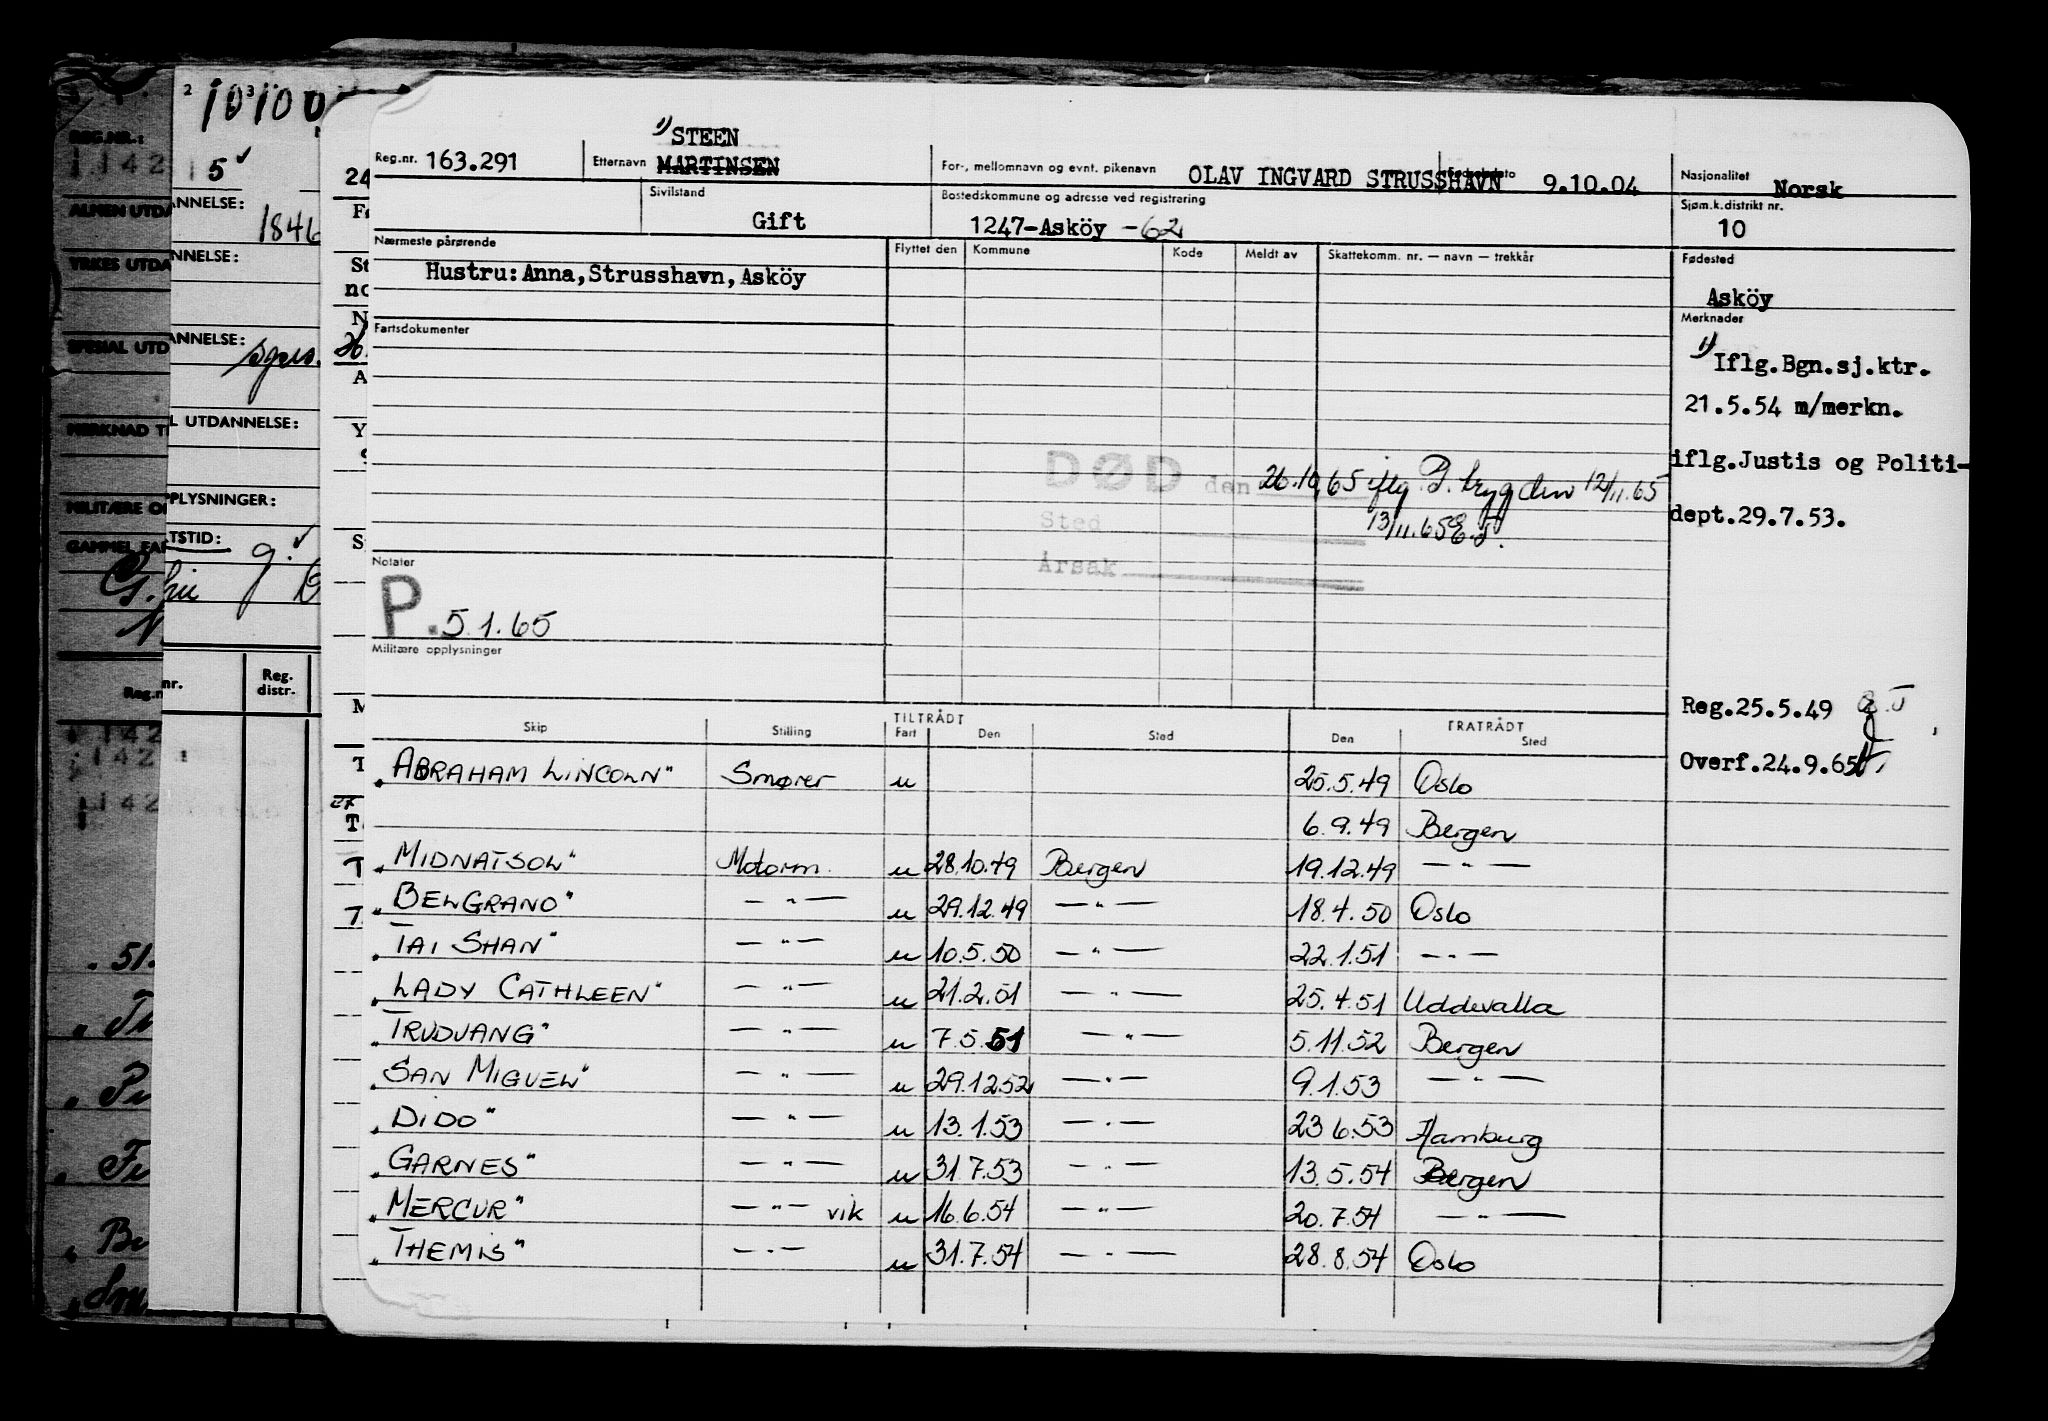 ¹⁾STEEN
Reg.nr. 163.291 Etternavn MARTINSEN For-, mellomnavn og evnt. pikenavn OLAV INGVARD STRUSSHAVN 9.10.04 Nasjonalitet Norsk
Sivilstand Gift Bostedskommune og adresse ved registrering 1247-Asköy -62 Sjøm.k.distrikt nr. 10
Nærmeste pårørende Flyttet den Kommune Kode Meldt av Skattekomm. nr. — navn — trekkår Fødested
Hustru: Anna, Strusshavn, Asköy Asköy
Fartsdokumenter Merknader
¹⁾ Iflg.Bgn.sj.ktr.
21.5.54 m/merkn.
iflg.Justis og Politi-
dept.29.7.53.
DØD den 26.10.65 iflg. P. trygden 12/11.65
Sted 13/11.65
Årsak
Notater
P. 5.1.65
Militære opplysninger
Reg.25.5.49
Overf.24.9.65
TILTRÅDT FRATRÅDT
Skip Stilling Fart Den Sted Den Sted
"ABRAHAM LINCOLN" Smører u 25.5.49 Oslo
6.9.49 Bergen
"MIDNATSOL" Motorm. u 28.10.49 Bergen 19.12.49 — " —
"BELGRANO" — " — u 29.12.49 — " — 18.4.50 Oslo
"TAI SHAN" — " — u 10.5.50 — " — 22.1.51 — " —
"LADY CATHLEEN" — " — u 21.2.51 — " — 25.4.51 Uddevalla
"TRUDVANG" — " — u 7.5.51 — " — 5.11.52 Bergen
"SAN MIGUEL" — " — u 29.12.52 — " — 9.1.53 — " —
"DIDO" — " — u 13.1.53 — " — 23.6.53 Hamburg
"GARNES" — " — u 31.7.53 — " — 13.5.54 Bergen
"MERCUR" — " — vik u 16.6.54 — " — 20.7.54 — " —
"THEMIS" — " — u 31.7.54 — " — 28.8.54 Oslo
2 3
10100
REG.NR.:
1142 5
ANNELSE:
1846
ALMEN UTDA
ANNELSE:
YRKES UTDA
ANNELSE:
SPESIAL UTD
L UTDANNELSE:
MERKNAD T
PPLYSNINGER:
MILITÆRE O
TSTID:
GAMMEL FA
nr. Reg. distr.
Reg.n
142
142
142
51.
24